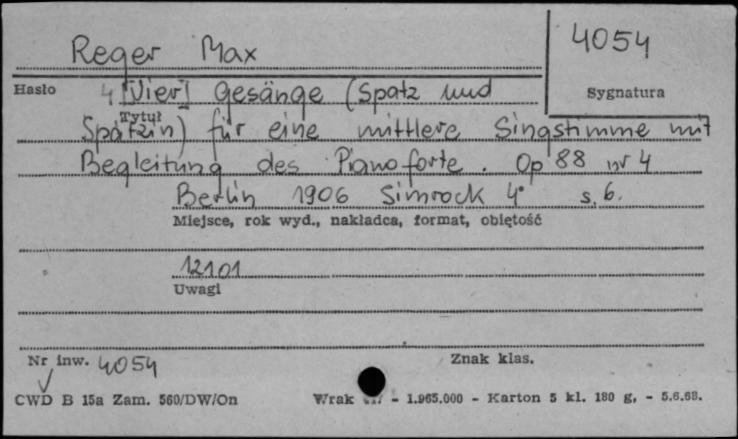 Reger Max
4054
Hasło
4 [Vier] Gesänge (Spatz und
Sygnatura
Tytuł
Spätzin) für eine mittlere Singstimme mit
Begleitung des Pianoforte. Op 88 nr 4
Berlin 1906 Simrock 4° s. 6.
Miejsce, rok wyd., nakładca, format, objętość
12101
Uwagi
Nr inw. 4054
Znak klas.
CWD B 15a Zam. 560/DW/On
- 1.965.000 - Karton 5 kl. 180 g, - 5.6.68.